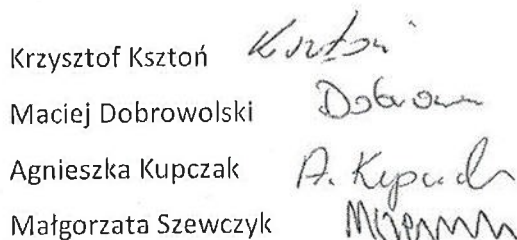 Krzysztof Ksztoń Ksztoń
Maciej Dobrowolski
Agnieszka Kupczak A. Kupczak
Małgorzata Szewczyk